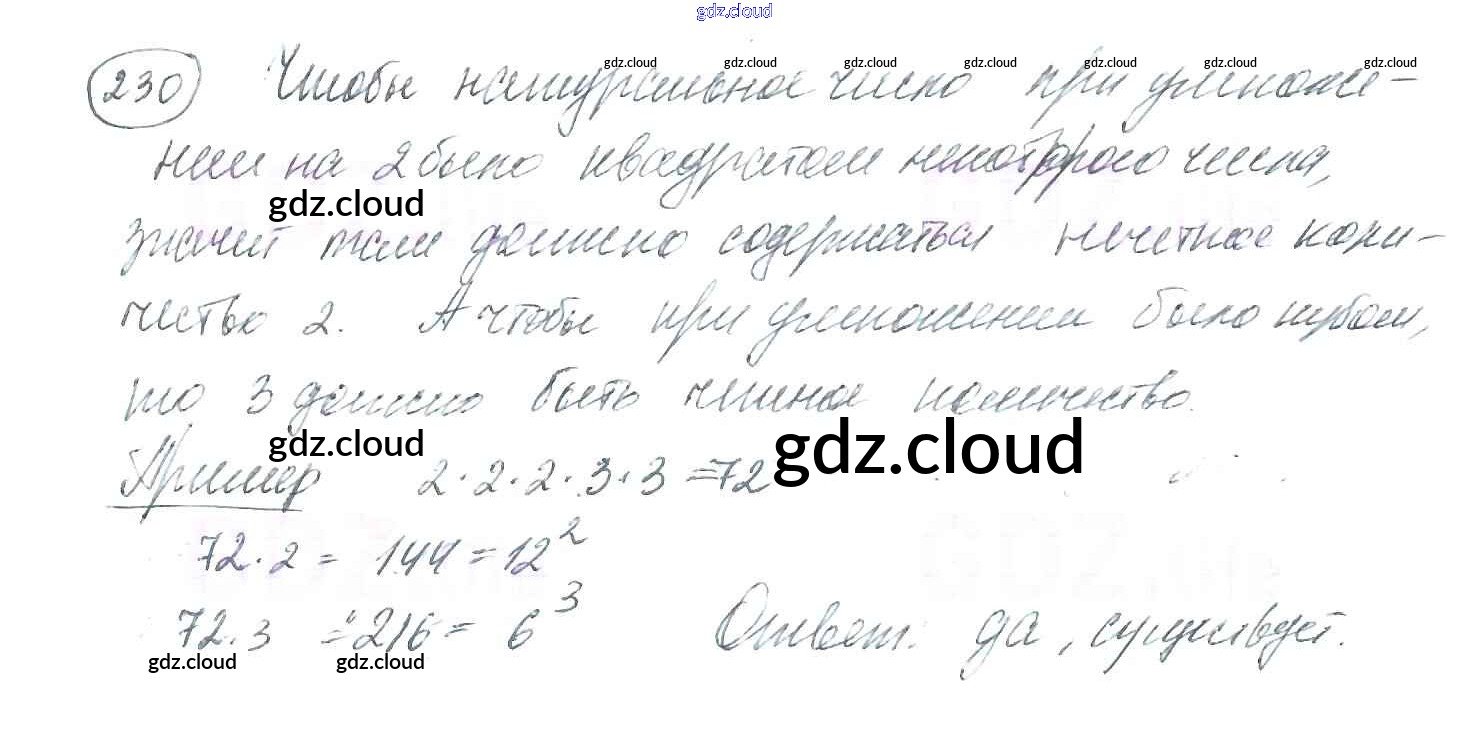 gdz.cloud
230 Чтобы натуральное число при умноже-
gdz.cloud gdz.cloud gdz.cloud gdz.cloud gdz.cloud gdz.cloud gdz.cloud
нии на 2 было квадратом некоторого числа,
gdz.cloud
значит там должно содержаться нечетное коли-
чество 2. А чтобы при умножении было кубом,
то 3 должно быть четное количество.
gdz.cloud gdz.cloud
Пример 2·2·2·3·3=72
72·2 = 144 = 12²
72·3 = 216 = 6³ Ответ: да, существует.
gdz.cloud gdz.cloud